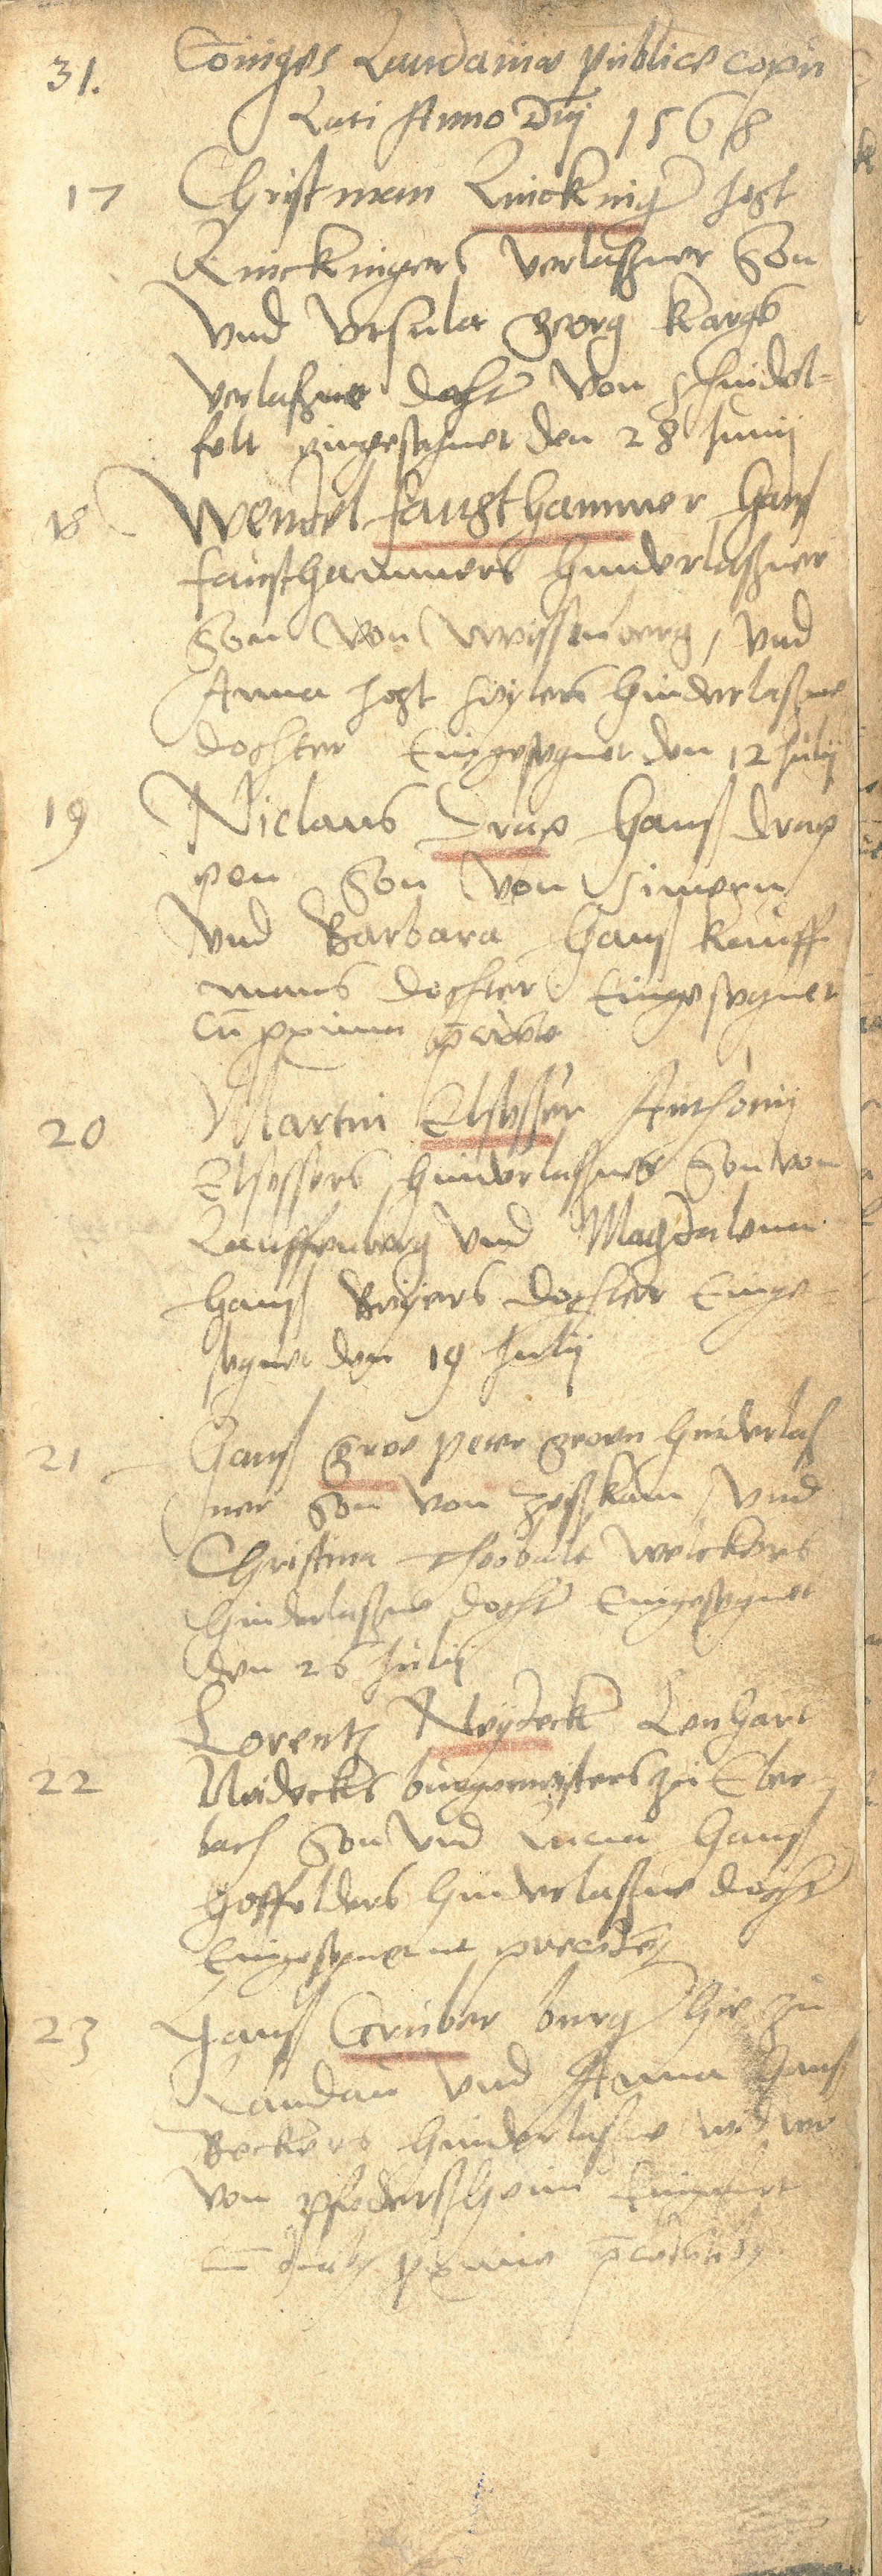 31. Coniuges Landaviae publice copu
lati Anno Dnj 1568
17 Christman Knicking Jost
Knickingers verlaßner Son
vnd Vrsula Georg Kargs
verlaßne docht von schindel-
felt eingesegnet den 28 Junij
18 Wendel fausthammer Hanß
fausthammers hinderlaßner
Son von Weissenberg, vnd
Anna Jost Heylers hinderlaßne
dochter Eingesegnet den 12 Julij
19 Niclaus Drap Hanß drap
pen Son von Simern
vnd Barbara Hanß Kauff
mans dochter Eingesegnet
cū proxime
20 Martin Elsesser Anthonij
Elsessers hinderlaßner Son von
Lauffenberg vnd Magdalena
Hanß Beyers dochter Einge
segnet den 19 Julij
21 Hanß Groe Peter Groen hinderlaß
ner Son von Zeißkam, vnd
Christina Theobalt Welckers
hinderlaßne docht Eingesegnet
den 26 Julij
Lorentz Neydeck Lenhart
22 Neidecks burgermeisters zu Eber
bach Son vnd Hanß
Hoffelders hinderlaßne docht
Eingesegnet ut
23 Hanß Gruber burg hie zu
Landau vnd Anna Hanß
Beckers hinderlaßne widwe
von Pfedersheim